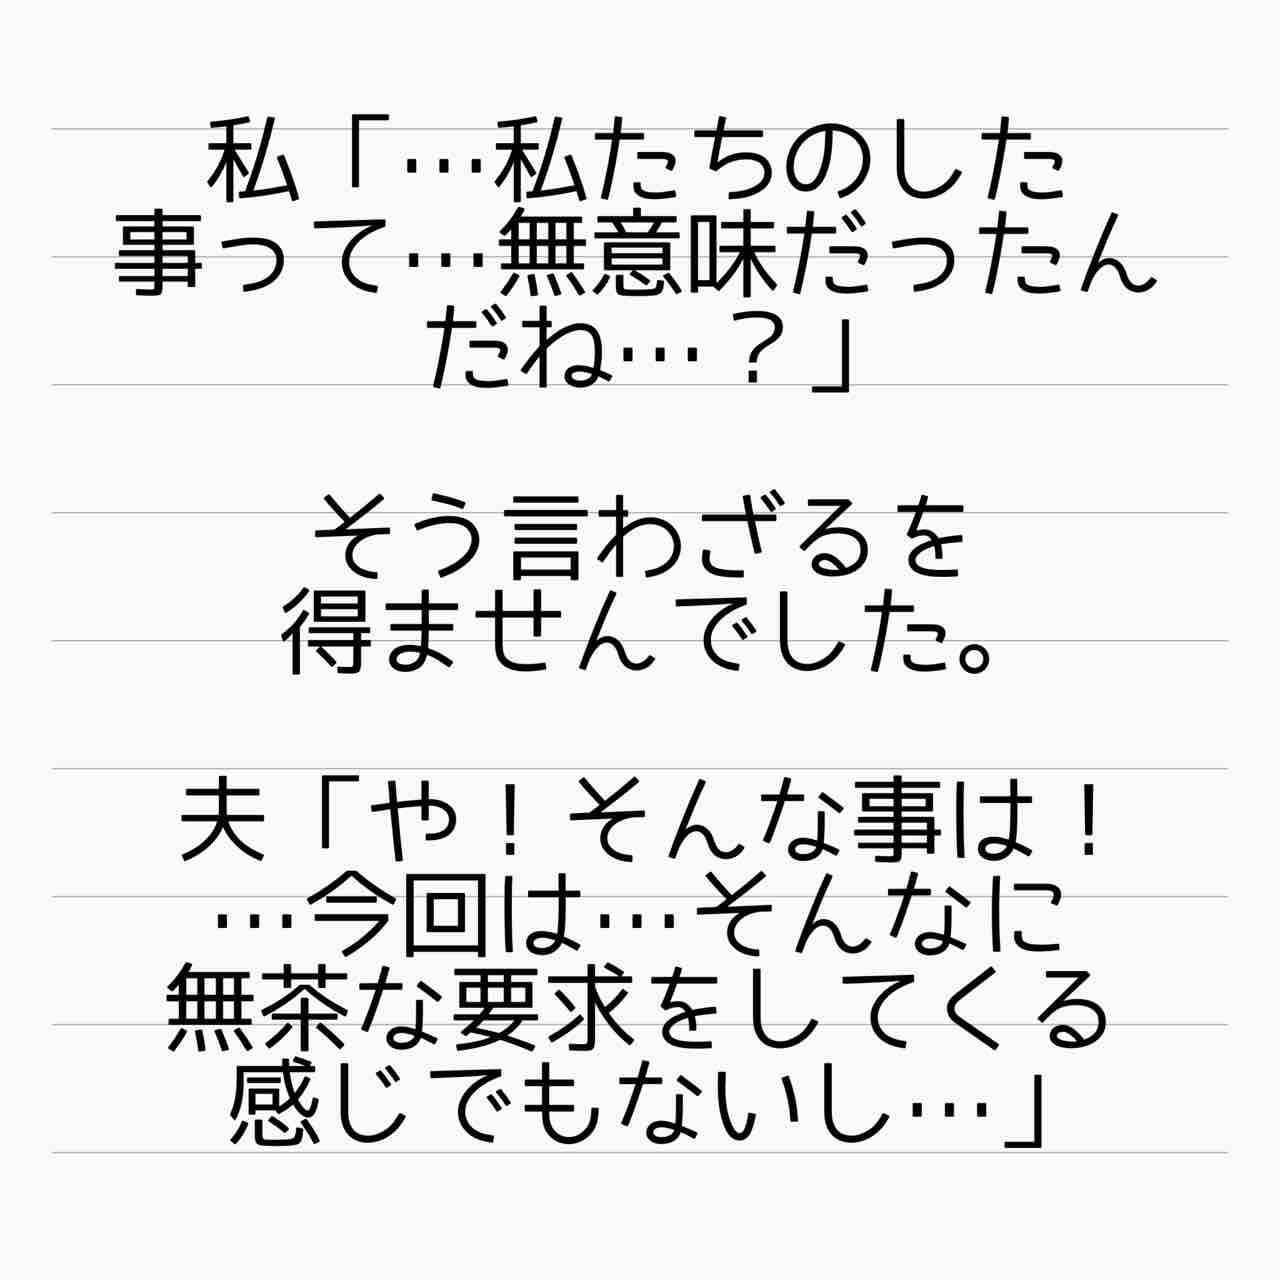 私「…私たちのした
事って…無意味だったん
だね…？」
そう言わざるを
得ませんでした。
夫「や！そんな事は！
…今回は…そんなに
無茶な要求をしてくる
感じでもないし…」